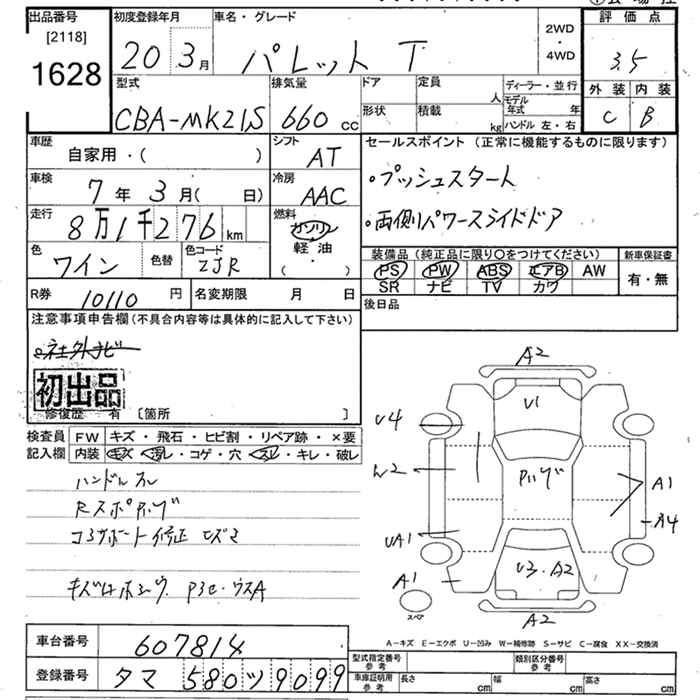 出品番号
[2118]
1628
初度登録年月
20 3月
車名・グレード
パレット T
2WD
・
4WD
評価点
3.5
外装 内装
C B
型式
CBA-MK21S
排気量
660 cc
ドア
形状
定員
人
積載
kg
ディーラー・並行
モデル年式 年
ハンドル 左・右
車歴
自家用・( )
シフト
AT
車検
7年 3月( 日)
冷房
AAC
走行
8万1千276 km
燃料
ガソリン
軽油
・
( )
色
ワイン
色替
色コード
ZJR
R券
10110 円
名変期限 月 日
セールスポイント (正常に機能するものに限ります)
・プッシュスタート
・両側パワースライドドア
装備品 (純正品に限り○をつけてください)
PS PW ABS エアB AW
SR ナビ TV カワ
新車保証書
有・無
後日品
注意事項申告欄 (不具合内容等は具体的に記入して下さい)
社外ナビ
初出品
修復歴 有 [箇所 ]
検査員記入欄
FW キズ・飛石・ヒビ割・リペア跡・×要
内装 キズ・汚レ・コゲ・穴・スレ・キレ・破レ
ハンドルスレ
コアサポート修正
A2
U1
U4
W2
A1
A4
UA1
A1
U3・A2
A2
スペア
A-キズ E-エクボ U-凹み W-補修跡 S-サビ C-腐食 XX-交換済
車台番号
607814
登録番号
タマ 580 ツ 9099
型式指定番号
参考
類別区分番号
参考
車庫証明用
参考
長さ cm
幅 cm
高さ cm